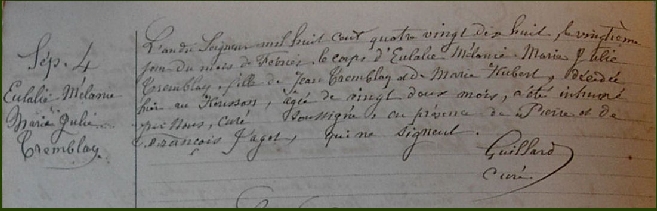 Sép. 4
Eulalie Mélanie
Marie Julie
Tremblay
L'an du Seigneur mil huit cent quatre vingt dix huit, le vingtième
jour du mois de Février, le corps d'Eulalie Mélanie Marie Julie
Tremblay, fille de Jean Tremblay et de Marie Hebert, décédée
hier au Housson, agée de vingt deux mois, a été inhumé
par Nous, curé soussigné en présence de Pierre et de
François Paget, qui ne signent.
Guillard
curé.